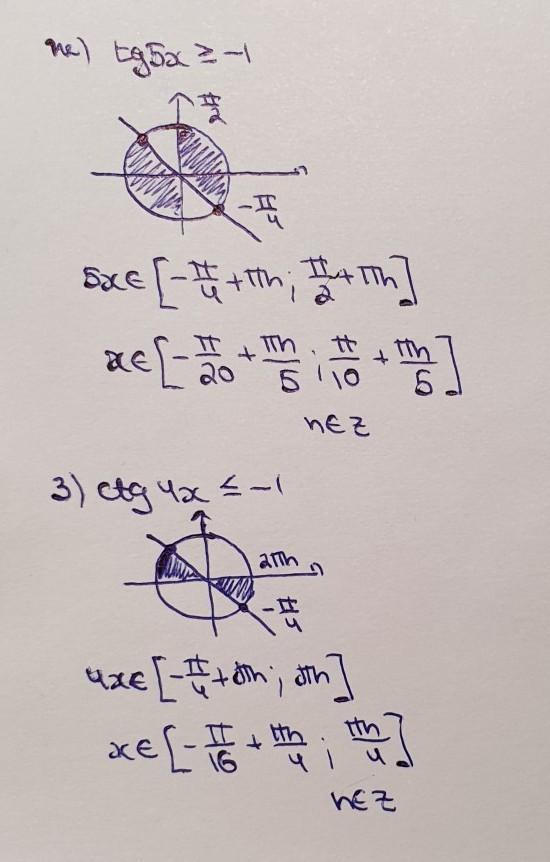 ж) tg5x ≥ -1
π/2
-π/4
5x∈[-π/4+πn; π/2+πn]
x∈[-π/20 + πn/5; π/10 + πn/5]
n∈z
з) ctg 4x ≤ -1
2πn
-π/4
4x∈[-π/4+πn; πn]
x∈[-π/16 + πn/4; πn/4]
n∈z